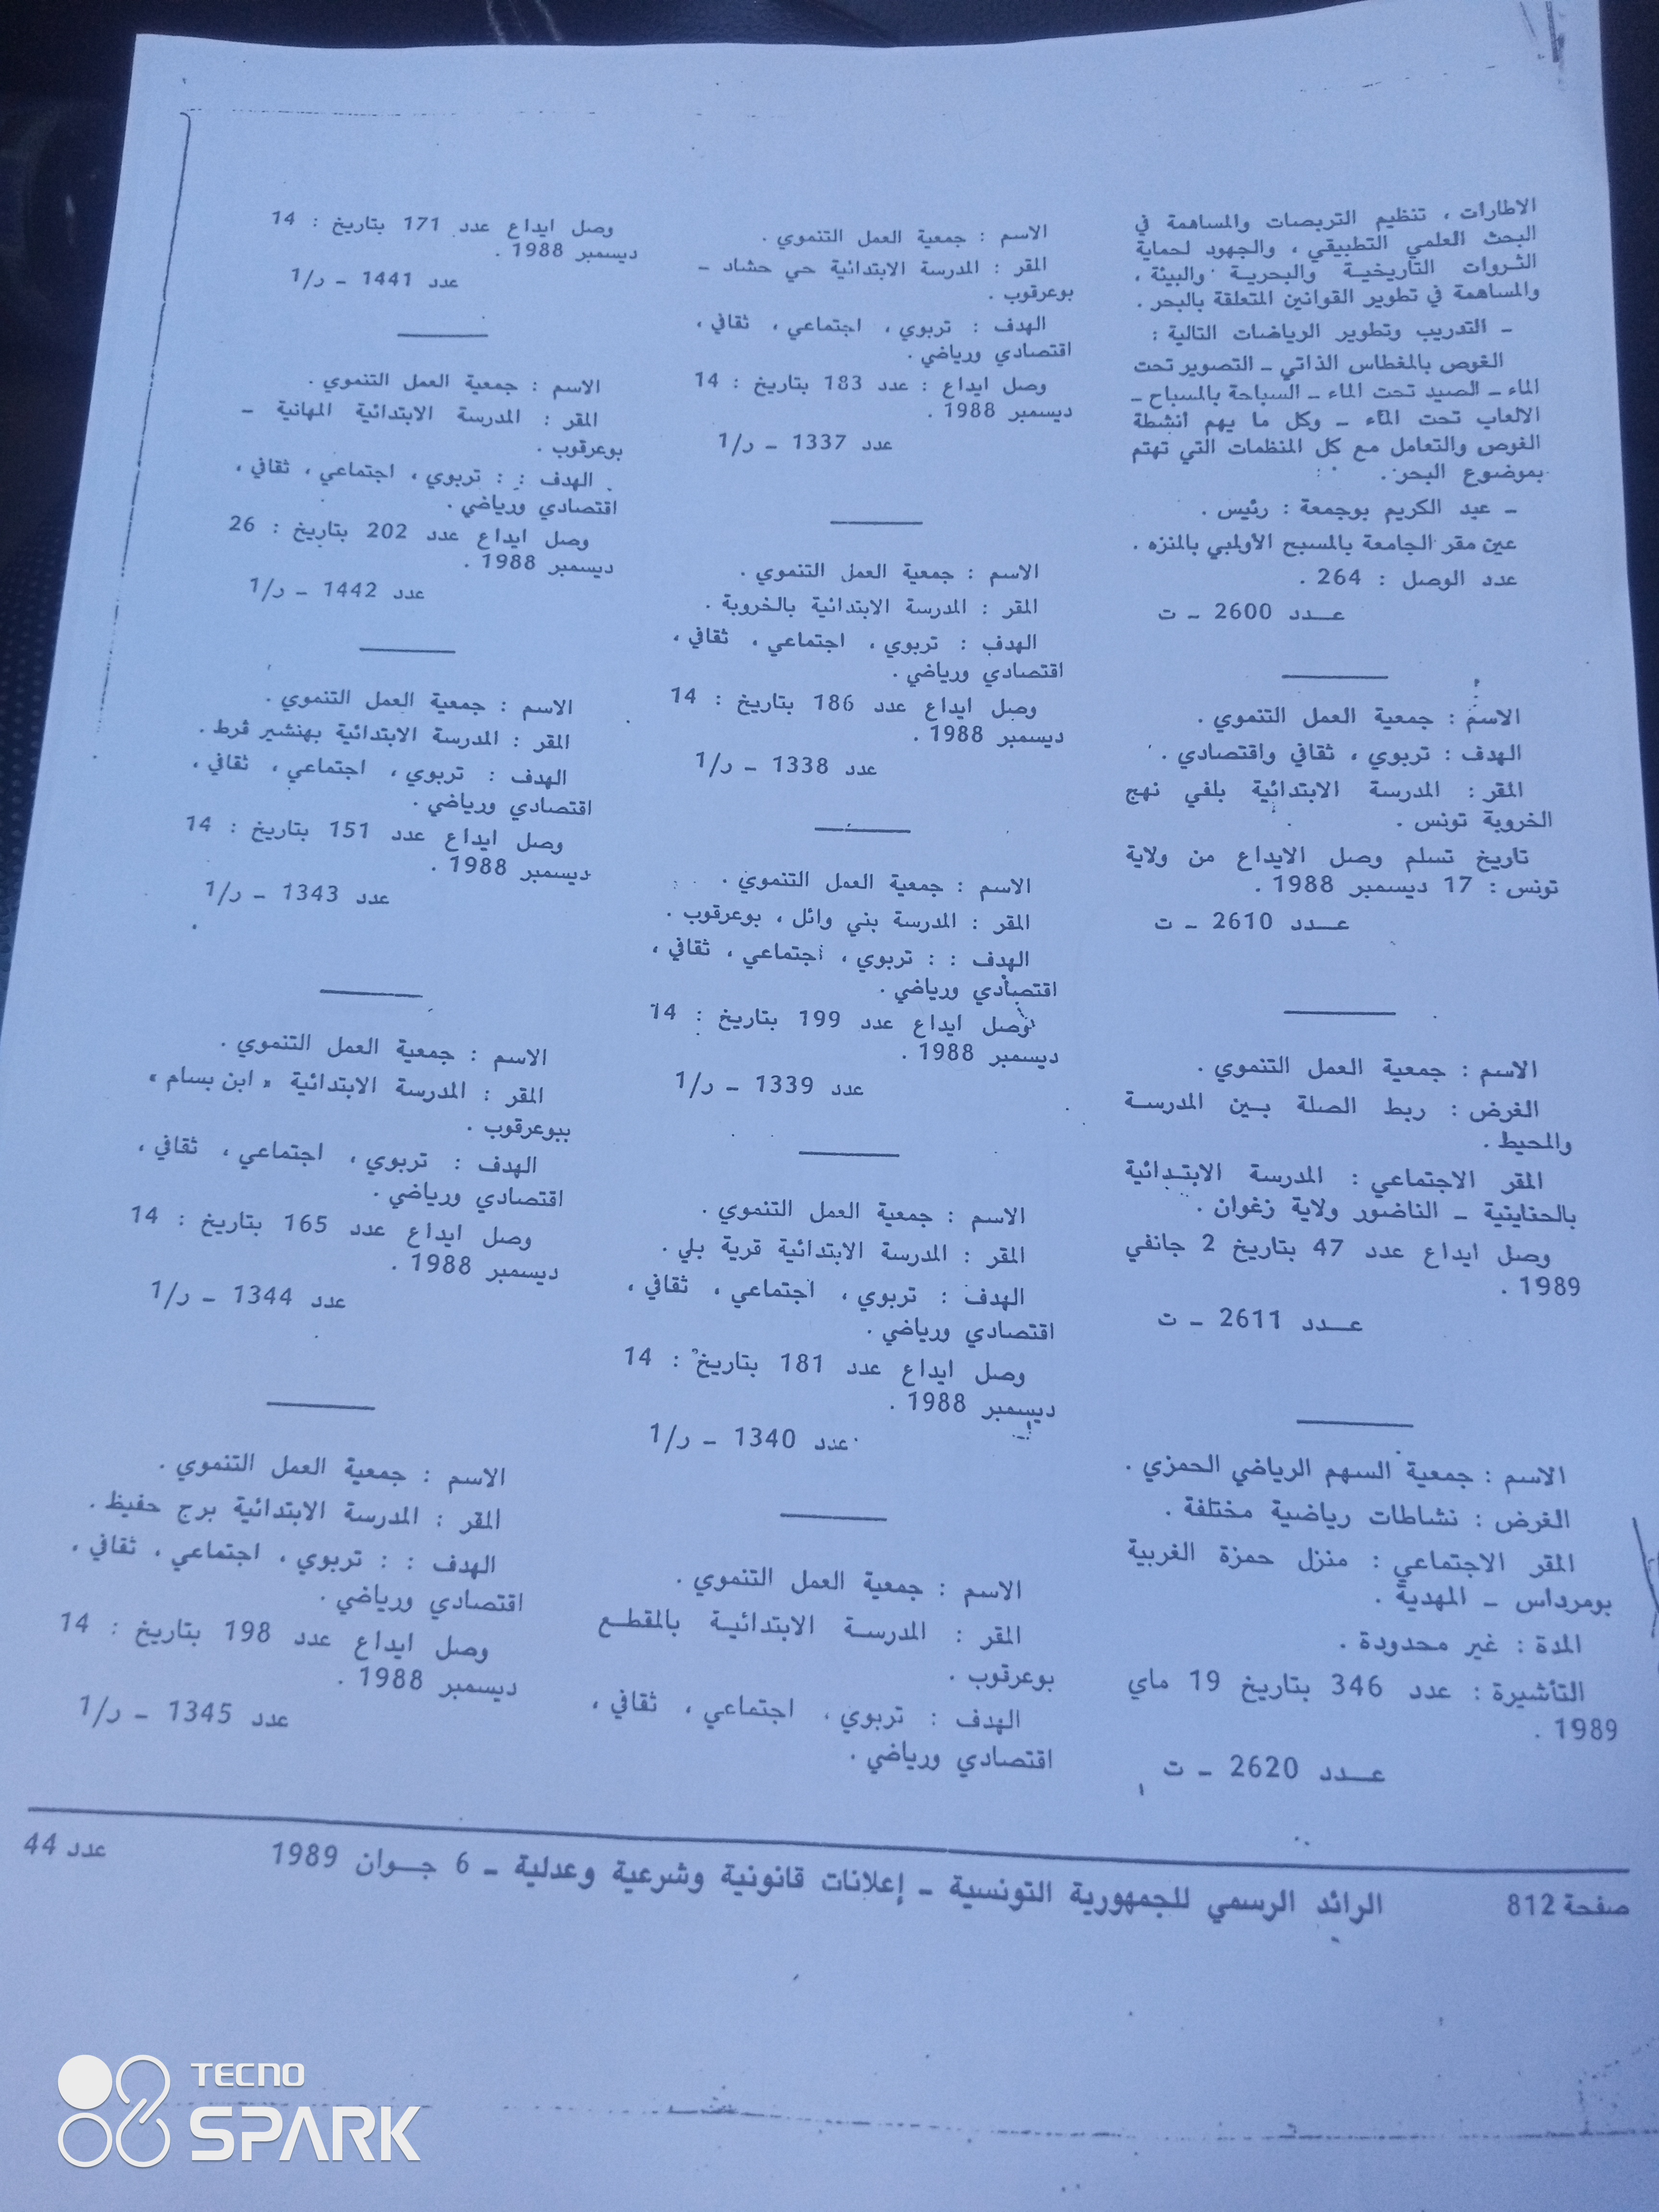 الاطارات ، تنظيم التربصات والمساهمة في
البحث العلمي التطبيقي ، والجهود لحماية
الثروات التاريخية والبحرية والبيئة ،
والمساهمة في تطوير القوانين المتعلقة بالبحر .
ـ التدريب وتطوير الرياضات التالية :
الغوص بالمغطاس الذاتي ـ التصوير تحت
الماء ـ الصيد تحت الماء ـ السباحة بالمسباح ـ
الالعاب تحت الماء ـ وكل ما يهم أنشطة
الغوص والتعامل مع كل المنظمات التي تهتم
بموضوع البحر .
ـ عبد الكريم بوجمعة : رئيس .
عين مقر الجامعة بالمسبح الأولمبي بالمنزه .
عدد الوصل : 264 .
عـــدد 2600 ـ ت
الاسم : جمعية العمل التنموي .
الهدف : تربوي ، ثقافي واقتصادي .
المقر : المدرسة الابتدائية بلفي نهج
الخروبة تونس .
تاريخ تسلم وصل الايداع من ولاية
تونس : 17 ديسمبر 1988 .
عـــدد 2610 ـ ت
الاسم : جمعية العمل التنموي .
الغرض : ربط الصلة بـين المدرسـة
والمحيط .
المقر الاجتماعي : المدرسة الابتـدائية
ـ الناضور ولاية زغوان .
وصل ايداع عدد 47 بتاريخ 2 جانفي
1989 .
عـــدد 2611 ـ ت
الاسم : جمعية السهم الرياضي الحمزي .
الغرض : نشاطات رياضية مختلفة .
المقر الاجتماعي : منزل حمزة الغربية
بومرداس ـ المهدية .
المدة : غير محدودة .
التأشيرة : عدد 346 بتاريخ 19 ماي
1989 .
عـــدد 2620 ـ ت
الاسم : جمعية العمل التنموي .
المقر : المدرسة الابتدائية حي حشاد ـ
بوعرقوب .
الهدف : تربوي ، اجتماعي ، ثقافي ،
اقتصادي ورياضي .
وصل ايداع : عدد 183 بتاريخ : 14
ديسمبر 1988 .
عدد 1337 ـ ر/1
الاسم : جمعية العمل التنموي .
المقر : المدرسة الابتدائية بالخروبة .
الهدف : تربوي ، اجتماعي ، ثقافي ،
اقتصادي ورياضي .
وصل ايداع عدد 186 بتاريخ : 14
ديسمبر 1988 .
عدد 1338 ـ ر/1
الاسم : جمعية العمل التنموي .
المقر : المدرسة بني وائل ، بوعرقوب .
الهدف : : تربوي ، اجتماعي ، ثقافي ،
اقتصادي ورياضي .
وصل ايداع عدد 199 بتاريخ : 14
ديسمبر 1988 .
عدد 1339 ـ ر/1
الاسم : جمعية العمل التنموي .
المقر : المدرسة الابتدائية قرية بلي .
الهدف : تربوي ، اجتماعي ، ثقافي ،
اقتصادي ورياضي .
وصل ايداع عدد 181 بتاريخ : 14
ديسمبر 1988 .
عدد 1340 ـ ر/1
الاسم : جمعية العمل التنموي .
المقر : المدرسـة الابتدائيـة بالمقطـع
بوعرقوب .
الهدف : تربوي ، اجتماعي ، ثقافي ،
اقتصادي ورياضي .
وصل ايداع عدد 171 بتاريخ : 14
ديسمبر 1988 .
عدد 1441 ـ ر/1
الاسم : جمعية العمل التنموي .
المقر : المدرسة الابتدائية المهانية ـ
بوعرقوب .
الهدف : : تربوي ، اجتماعي ، ثقافي ،
اقتصادي ورياضي .
وصل ايداع عدد 202 بتاريخ : 26
ديسمبر 1988 .
عدد 1442 ـ ر/1
الاسم : جمعية العمل التنموي .
المقر : المدرسة الابتدائية بهنشير قرط .
الهدف : تربوي ، اجتماعي ، ثقافي ،
اقتصادي ورياضي .
وصل ايداع عدد 151 بتاريخ : 14
ديسمبر 1988 .
عدد 1343 ـ ر/1
الاسم : جمعية العمل التنموي .
المقر : المدرسة الابتدائية « ابن بسام »
ببوعرقوب .
الهدف : تربوي ، اجتماعي ، ثقافي ،
اقتصادي ورياضي .
وصل ايداع عدد 165 بتاريخ : 14
ديسمبر 1988 .
عدد 1344 ـ ر/1
الاسم : جمعية العمل التنموي .
المقر : المدرسة الابتدائية برج حفيظ .
الهدف : : تربوي ، اجتماعي ، ثقافي ،
اقتصادي ورياضي .
وصل ايداع عدد 198 بتاريخ : 14
ديسمبر 1988 .
عدد 1345 ـ ر/1
صفحة 812 الرائد الرسمي للجمهورية التونسية ـ إعلانات قانونية وشرعية وعدلية ـ 6 جــوان 1989 عدد 44
TECNO
SPARK